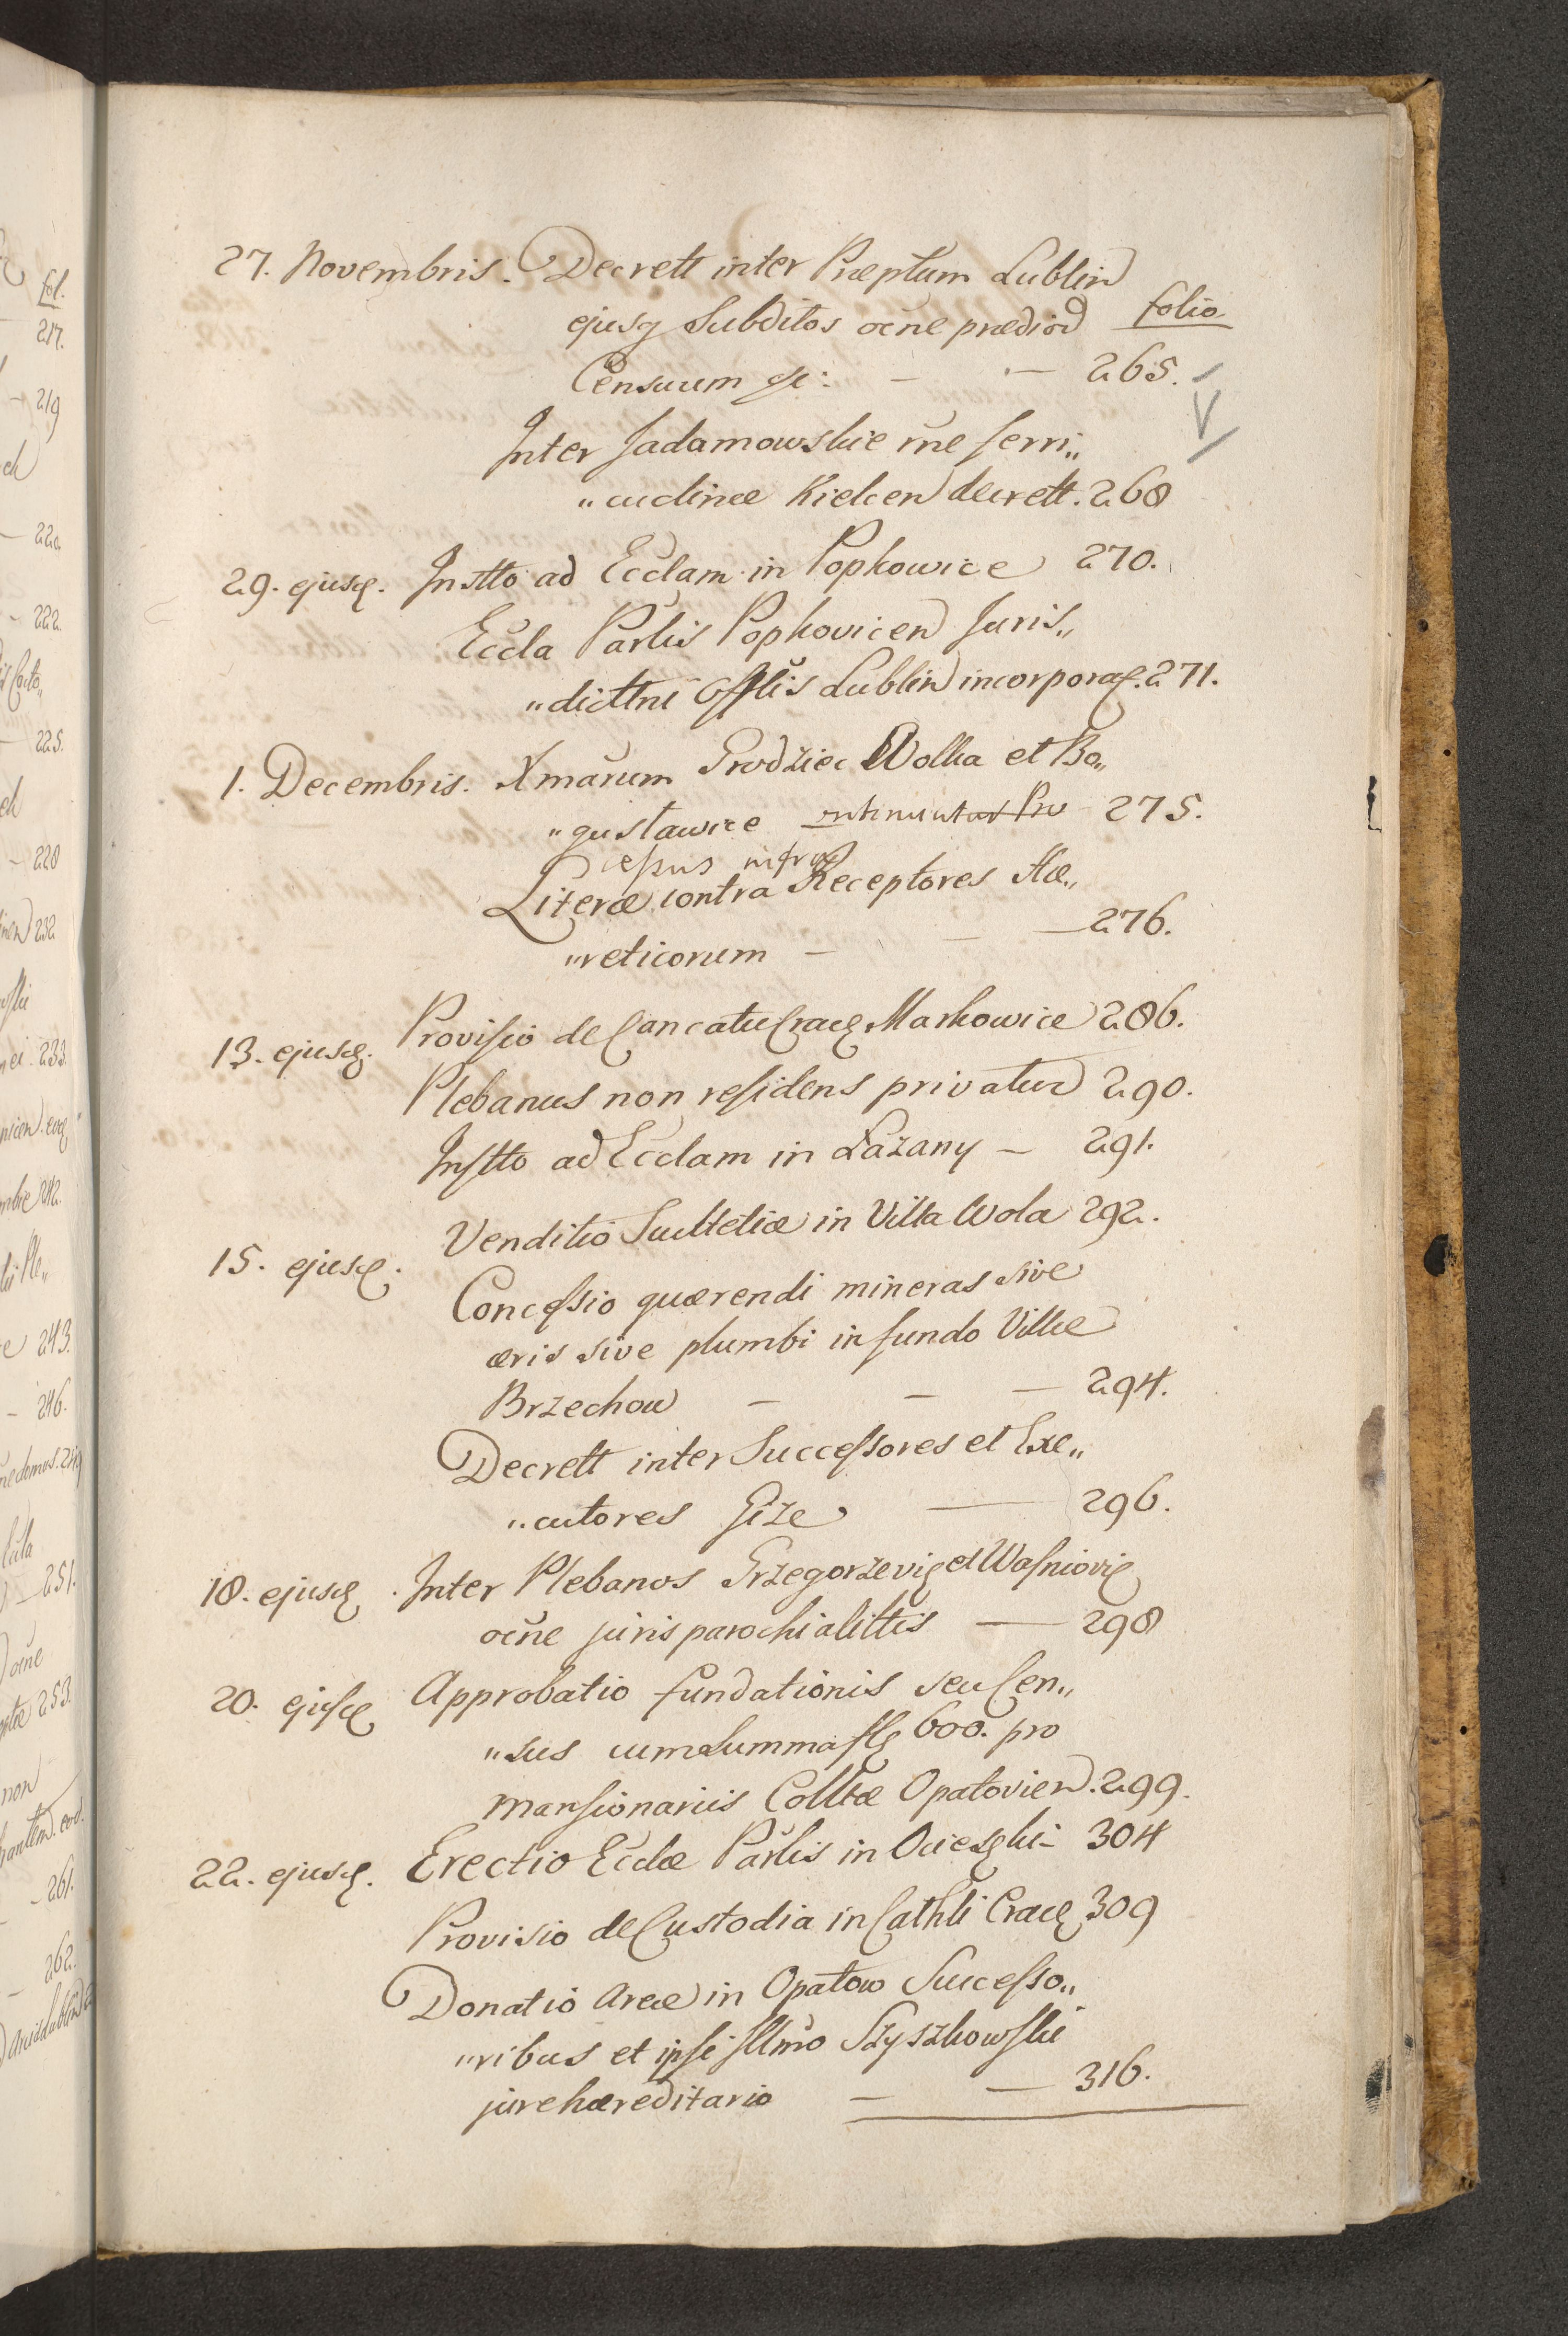 27. Novembris. Decrett inter Præptum Lublin
ejusq Subditos ŏcne prædiod folio
Censuum &c: — — 265.
Inter Jadamowskie rñe ferri„
„cudinæ Kielcen decrett. 268
29. ejusd. Instto ad Ecclam in Popkowice 270.
Eccla Parlis Popkovicen Juris„
„dicttni Offlis Lublin incorporat. 271.
1. Decembris. Xmarum Grodziec Wolka et Bo„
„gustawice 275.
epus infra
Literæ contra Receptores Hæ„
„reticorum — — 276.
13. ejusd. Provisio de Cancatu Crac Markowice 286.
Plebanus non residens privatur 290.
Instto ad Ecclam in Łazany — 291.
15. ejusd. Venditio Scultetiæ in Villa Wola 292.
Concessio quærendi mineras sive
æris sive plumbi in fundo Villæ
Brzechow — — — 294.
Decrett inter Successores et Exe„
„cutores Gize — 296.
18. ejusd. Inter Plebanos Grzegorzevic et Wasniovic
ocne juris parochialittis — 298
20. ejusd Approbatio fundationis seu Cen„
„sus cum Summa fl 600. pro
Mansionariis Colltæ Opatovien. 299.
22. ejusd. Erectio Ecclæ Parlis in Ocieski 304
Provisio de Custodia in Cathli Crac 309
Donatio Areæ in Opatow Successo„
„ribus et ipsi Illmo Szyszkowski
jure hæreditario — — 316.
fol.
217.
— 219
— 220.
— 222.
— 225.
— 228
232
233.
242.
243.
— 246.
249
— 251.
253.
non
— 261.
— 262.